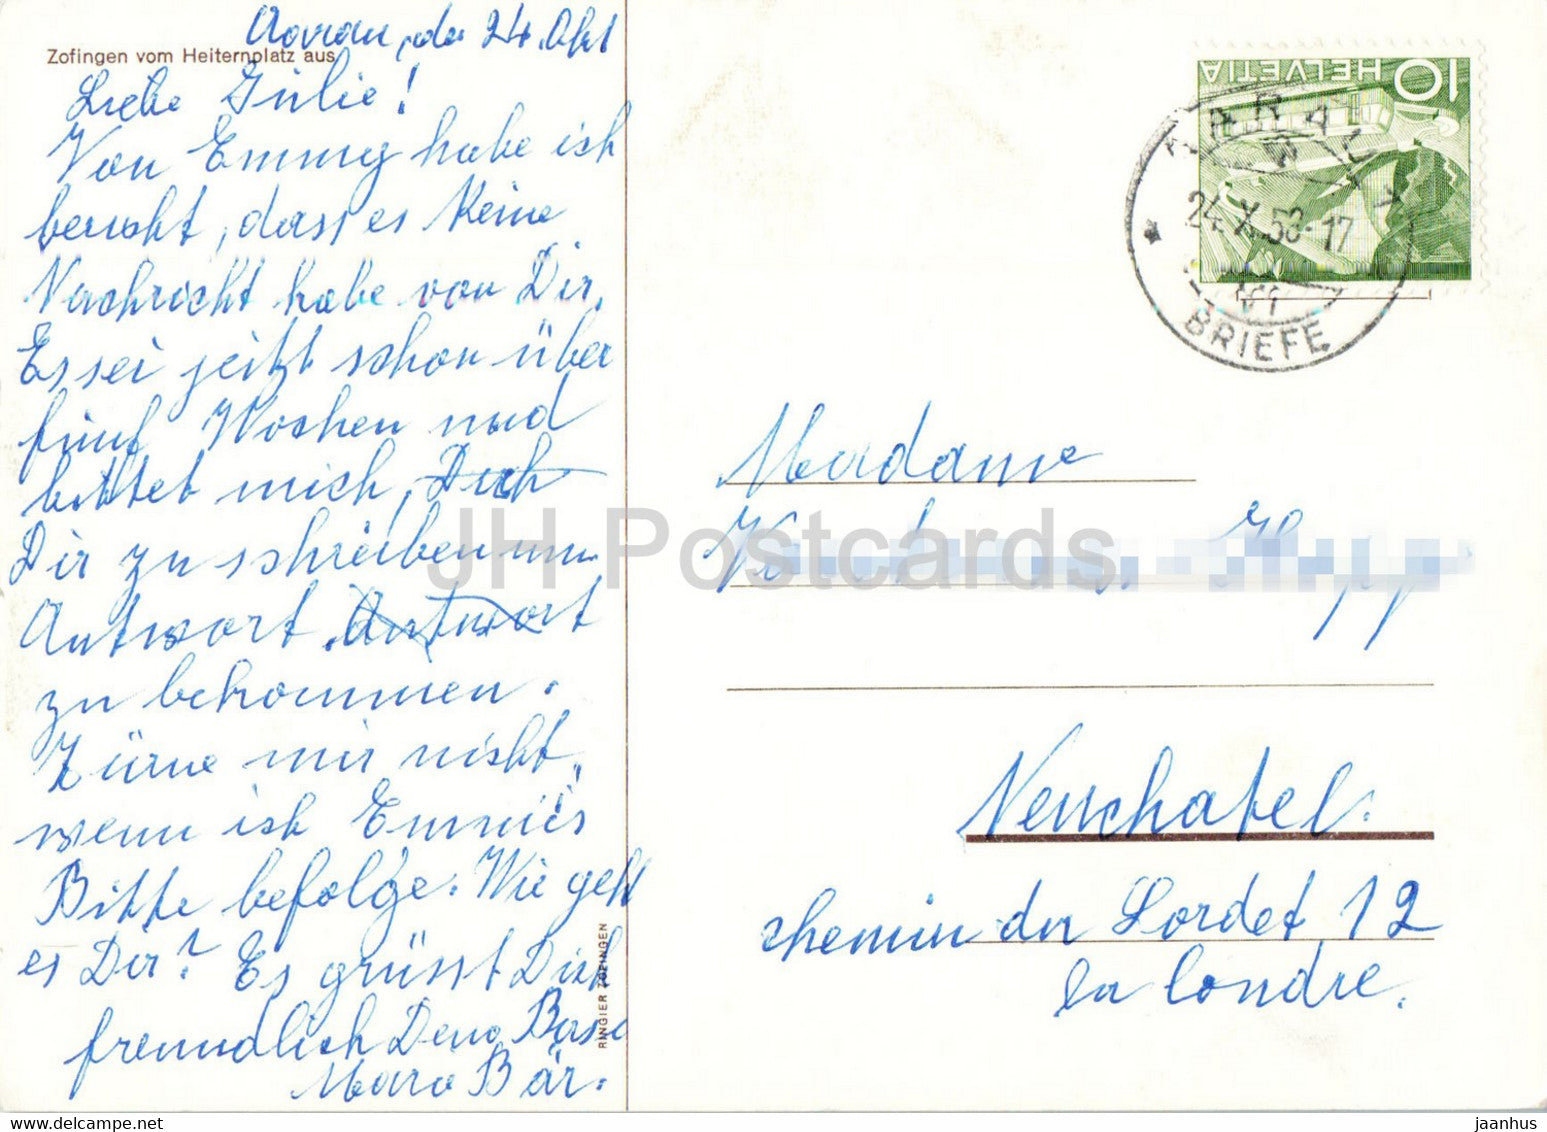 Aarau, den 24. Okt
Zofingen vom Heiternplatz aus
Liebe Julie!
Von Emmy habe ich
berucht, dass es Keine
Nachricht habe von Dir.
Es sei jetzt schon über
fünf Wochen und
bittet mich, Dich
Dir zu schreiben um
Antwort Antwort
zu bekommen.
Zürne mir nicht,
wenn ich Emmiés
Bitte befolge. Wie geht
es Dir? Es grüsst Dich
freundlich Deine Base
Mara Bär.
RINGIER ZOFINGEN
HELVETIA 10
AARAU 1
24.X.53-17
BRIEFE
Madame
Neuchatel.
chemin du Lordet 12
la Condre.
JH Postcards
jaanhus